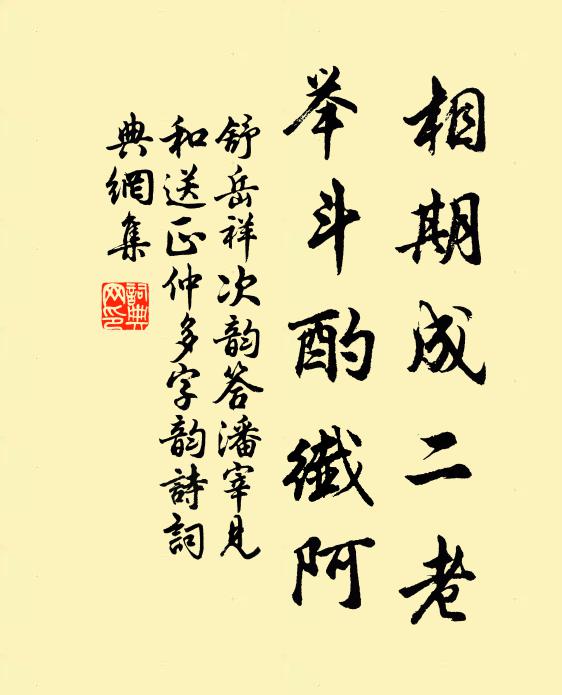 相期成二老
举斗酌纖阿
舒岳祥次韵答潘宰見
和送正仲多字韵詩詞
典網集
詞典
网印